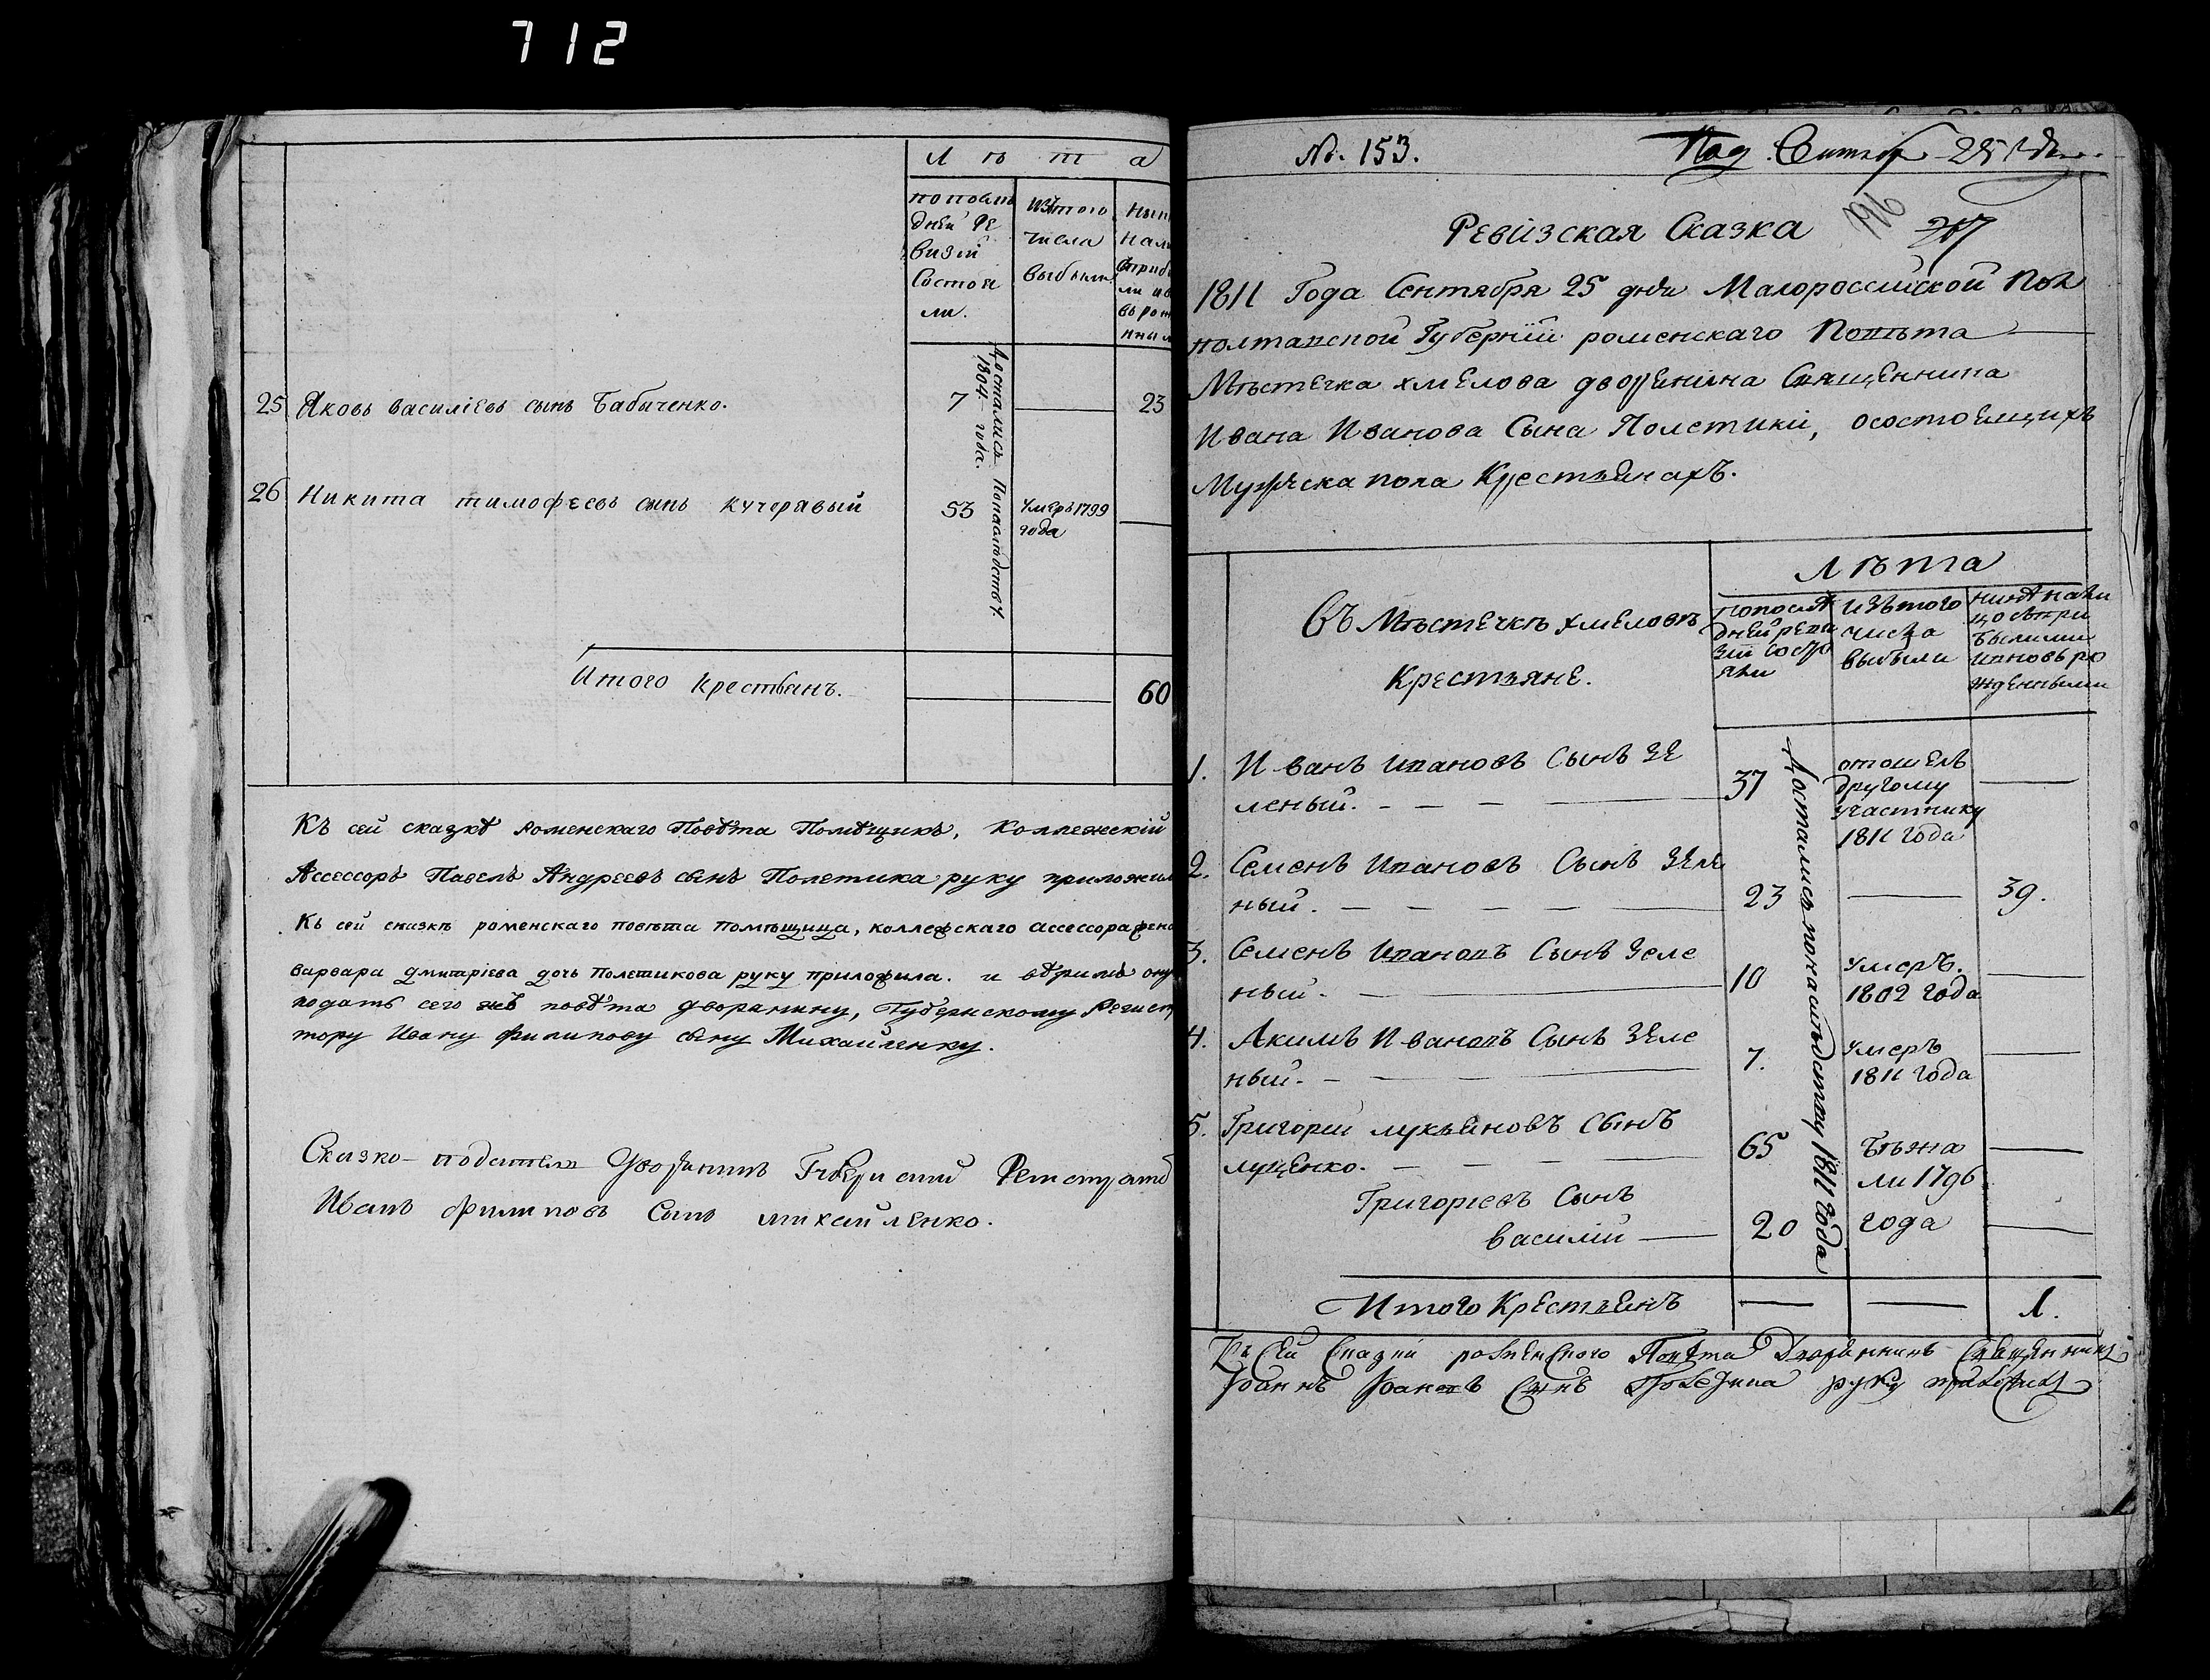 712
Л ѣ т а
по послѣ
дней Ре
визіи
Состоя
ли.
изътого
числа
выбыли
25 Яковъ василіевъ сынъ Бабиченко.
7
23
Достались По наслѣдству
1804 года.
26 Никита тимофеевъ сынъ кучерявый
53
Умеръ 1799
года
Итого крестьянъ.
60
Къ сей сказкѣ роменскаго Повѣта Помѣщикъ, Коллежскій
Ассессоръ Павелъ Андреевъ сынъ Полетика руку приложил
Къ сей сказкѣ роменскаго повѣта помѣщица, коллежскаго ассессора жена
варвара дмитріева дочь Полетикова руку приложила. и вѣримъ ону
подать сего жъ повѣта дворянину, Губернскому Регист
тору Ивану филипову сыну Михайленку.
Сказко-податель дворянинъ Губернский Регистрато
Иванъ филиповъ Сынъ михайленко.
№. 153.
Под. Сентяб 25 дня
Ревизская Сказка
196
207
1811 Года Сентября 25 дня Малороссийской Пол
полтавской Губерніи роменскаго Повѣта
Мѣстечка хмелова дворенина Священника
Ивана Иванова Сына Полетики, осостоящихъ
Мужеска пола Крестьянахъ.
Въ Мѣстечкѣ хмеловѣ
Крестьяне.
Лѣта
попослѣ
дней реви
зіи состо
яли
изътого
числа
выбыли
нинѣ нали
цо съпри
былими
ивновь ро
жденными
1. Иванъ ивановъ Сынъ зе
леный.
37
отошелъ
другому
участнику
1811 года
Достались по наслѣдству 1811 года
2. Семенъ Ивановъ Сынъ зеле
ный.
23
39.
3. Семенъ Ивановъ Сынъ зеле
ный.
10
умеръ.
1802 года
4. Акимъ Ивановъ Сынъ зеле
ный.
7.
умеръ
1811 года
5. Григорей лукьяновъ Сынъ
луценко.
65
Бѣжа
ли 1796
Григоріевъ Сынъ
василій
20
года
Итого Крестьянъ
1.
Къ сей сказки роменского Повѣта Дворянинъ Священникъ
Іоаннъ Іоановъ Сынъ Полетика руку приложилъ